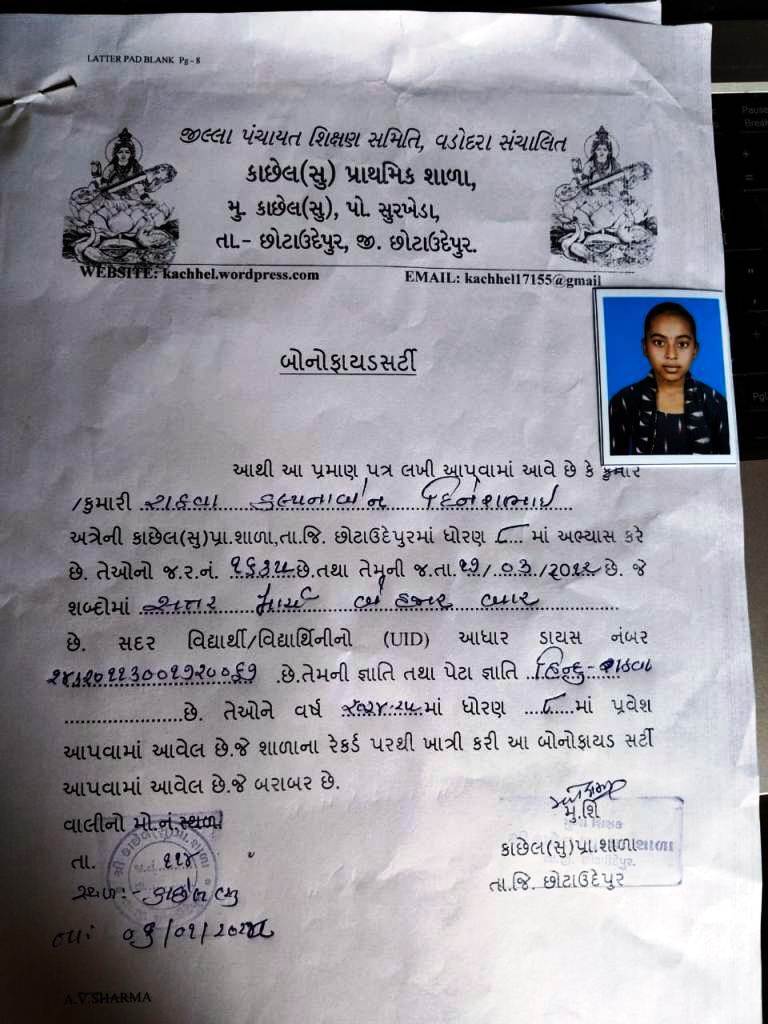 LATTER PAD BLANK Pg - 8
જીલ્લા પંચાયત શિક્ષણ સમિતિ, વડોદરા સંચાલિત
કાછેલ(સુ) પ્રાથમિક શાળા,
મુ. કાછેલ(સુ), પો. સુરખેડા,
તા.- છોટાઉદેપુર, જી. છોટાઉદેપુર.
WEBSITE: kachhel.wordpress.com EMAIL: kachhel17155@gmail
બોનોફાયડસર્ટી
આથી આ પ્રમાણ પત્ર લખી આપવામાં આવે છે કે કુમાર
/કુમારી રાઠવા કલ્પનાબેન દિનેશભાઇ
અત્રેની કાછેલ(સુ)પ્રા.શાળા,તા.જિ. છોટાઉદેપુરમાં ધોરણ ૮ માં અભ્યાસ કરે
છે. તેઓનો જ.ર.નં. ૧૬૩૫ છે.તથા તેમની જ.તા. ૧૭/૦૩/૨૦૧૨ છે. જે
શબ્દોમાં સત્તર માર્ચ બે હજાર બાર
છે. સદર વિદ્યાર્થી/વિદ્યાર્થિનીનો (UID) આધાર ડાયસ નંબર
.છે.તેમની જ્ઞાતિ તથા પેટા જ્ઞાતિ હિન્દુ-રાઠવા
છે. તેઓને વર્ષ ૨૦૨૪-૨૫ માં ધોરણ ૮ માં પ્રવેશ
આપવામાં આવેલ છે.જે શાળાના રેકર્ડ પરથી ખાત્રી કરી આ બોનોફાયડ સર્ટી
આપવામાં આવેલ છે.જે બરાબર છે.
વાલીનો મો.નં.સ્થળ
મુ.શિ
તા. ૧૧૪
કાછેલ(સુ)પ્રા.શાળા
સ્થળ:- કાછેલ સુ
તા.જિ. છોટાઉદેપુર
તા:
A.V.SHARMA